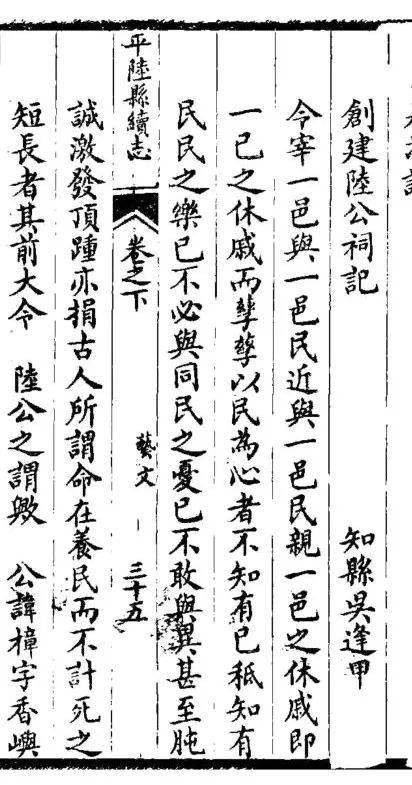 創建陸公祠記 知縣吳逢甲
令宰一邑與一邑民近與一邑民親一邑之休戚即
一已之休戚而孳孳以民為心者不知有已秪知有
民民之樂已不必與同民之憂已不敢與異甚至肫
平陸縣續志 卷之下 藝文 三十五
誠激發頂踵亦捐古人所謂命在養民而不計死之
短長者其前大令 陸公之謂歟 公諱樟字香嶼